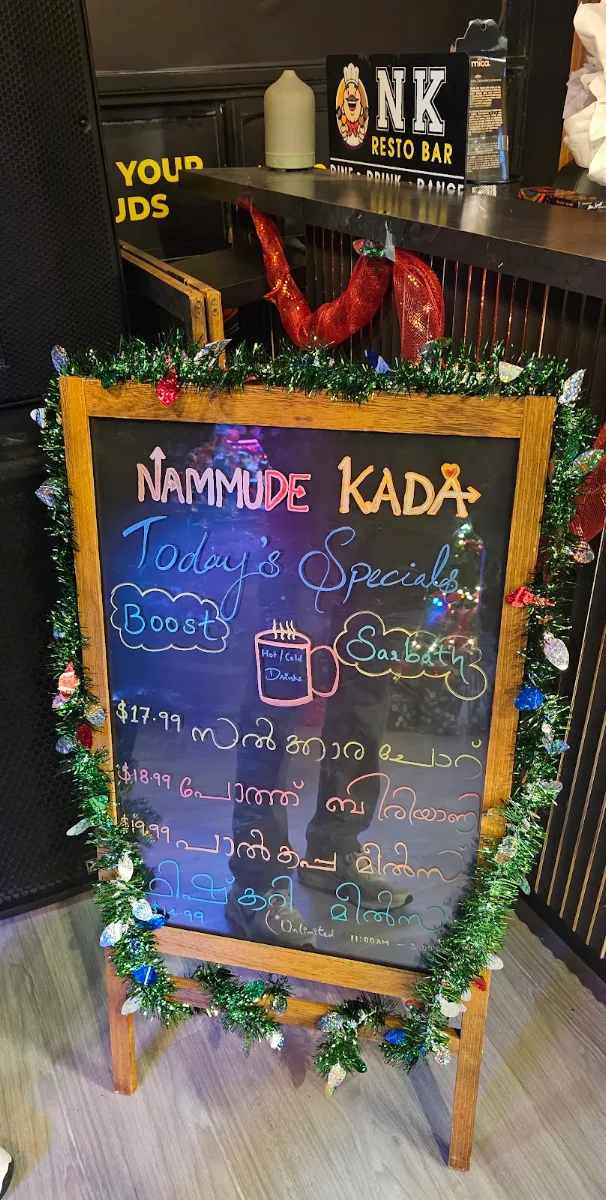 mica
NK
RESTO BAR
DINE • DRINK • DANCE
YOUR
UDS
NAMMUDE KADA
Today's Specials
Boost
Hot/Cold
Drinks
Sarbath
$17.99 സൽക്കാര ചോറ്
$18.99 പോത്ത് ബിരിയാണി
$19.99 പാൽകപ്പ മീൽസ്
ഫിഷ് കറി മീൽസ്
$14.99
(Unlimited 11:00AM - 3:00